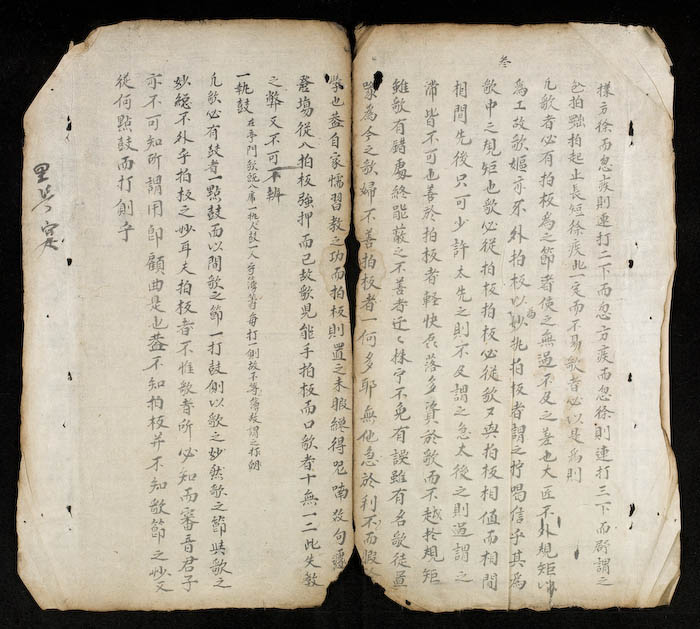 叁
樣方徐而忽疾則連打二下而忽方疾而忽徐則連打三下而謂之
拍點拍起止長短徐疾此一定而不易歌者必以是爲則
凡歌者必有拍板爲之節者使之無過不及之差也大匠不外規矩以
爲工故歌嫗亦不外拍板以爲妙批拍板者謂之佇唱信乎其爲
歌中之規矩也歌必從拍板拍板必從歌又與拍板相值而相間
相間先後只可少許太先之則不及謂之急太後之則過謂之
滯皆不可也善於拍板者輕快落多資於歌而不越於規矩
雖歌有錯處終能蔽之不善者迂々株守不免有誤雖有名歌徒置
爲今之歌婦不善拍板者一何多耶無他急於利不而
學也蓋自家懦習教之功而拍板則置之未暇纔得喃数句
登場從人拍板強押而已故歌兒能手拍板而口歌者十無一二此失教
之弊又不可不辨
一執鼓 在亭門歌
凡歌必有鼓者一點鼓而以間歌之節一打鼓劍以歌之妙然歌之節與歌之
妙總不外乎拍板之妙耳夫拍板者不惟歌者所必知而審音君子
亦不可知所謂用郎顧曲是也蓋不知拍板并不知歌節之妙又
從何點鼓而打劍乎